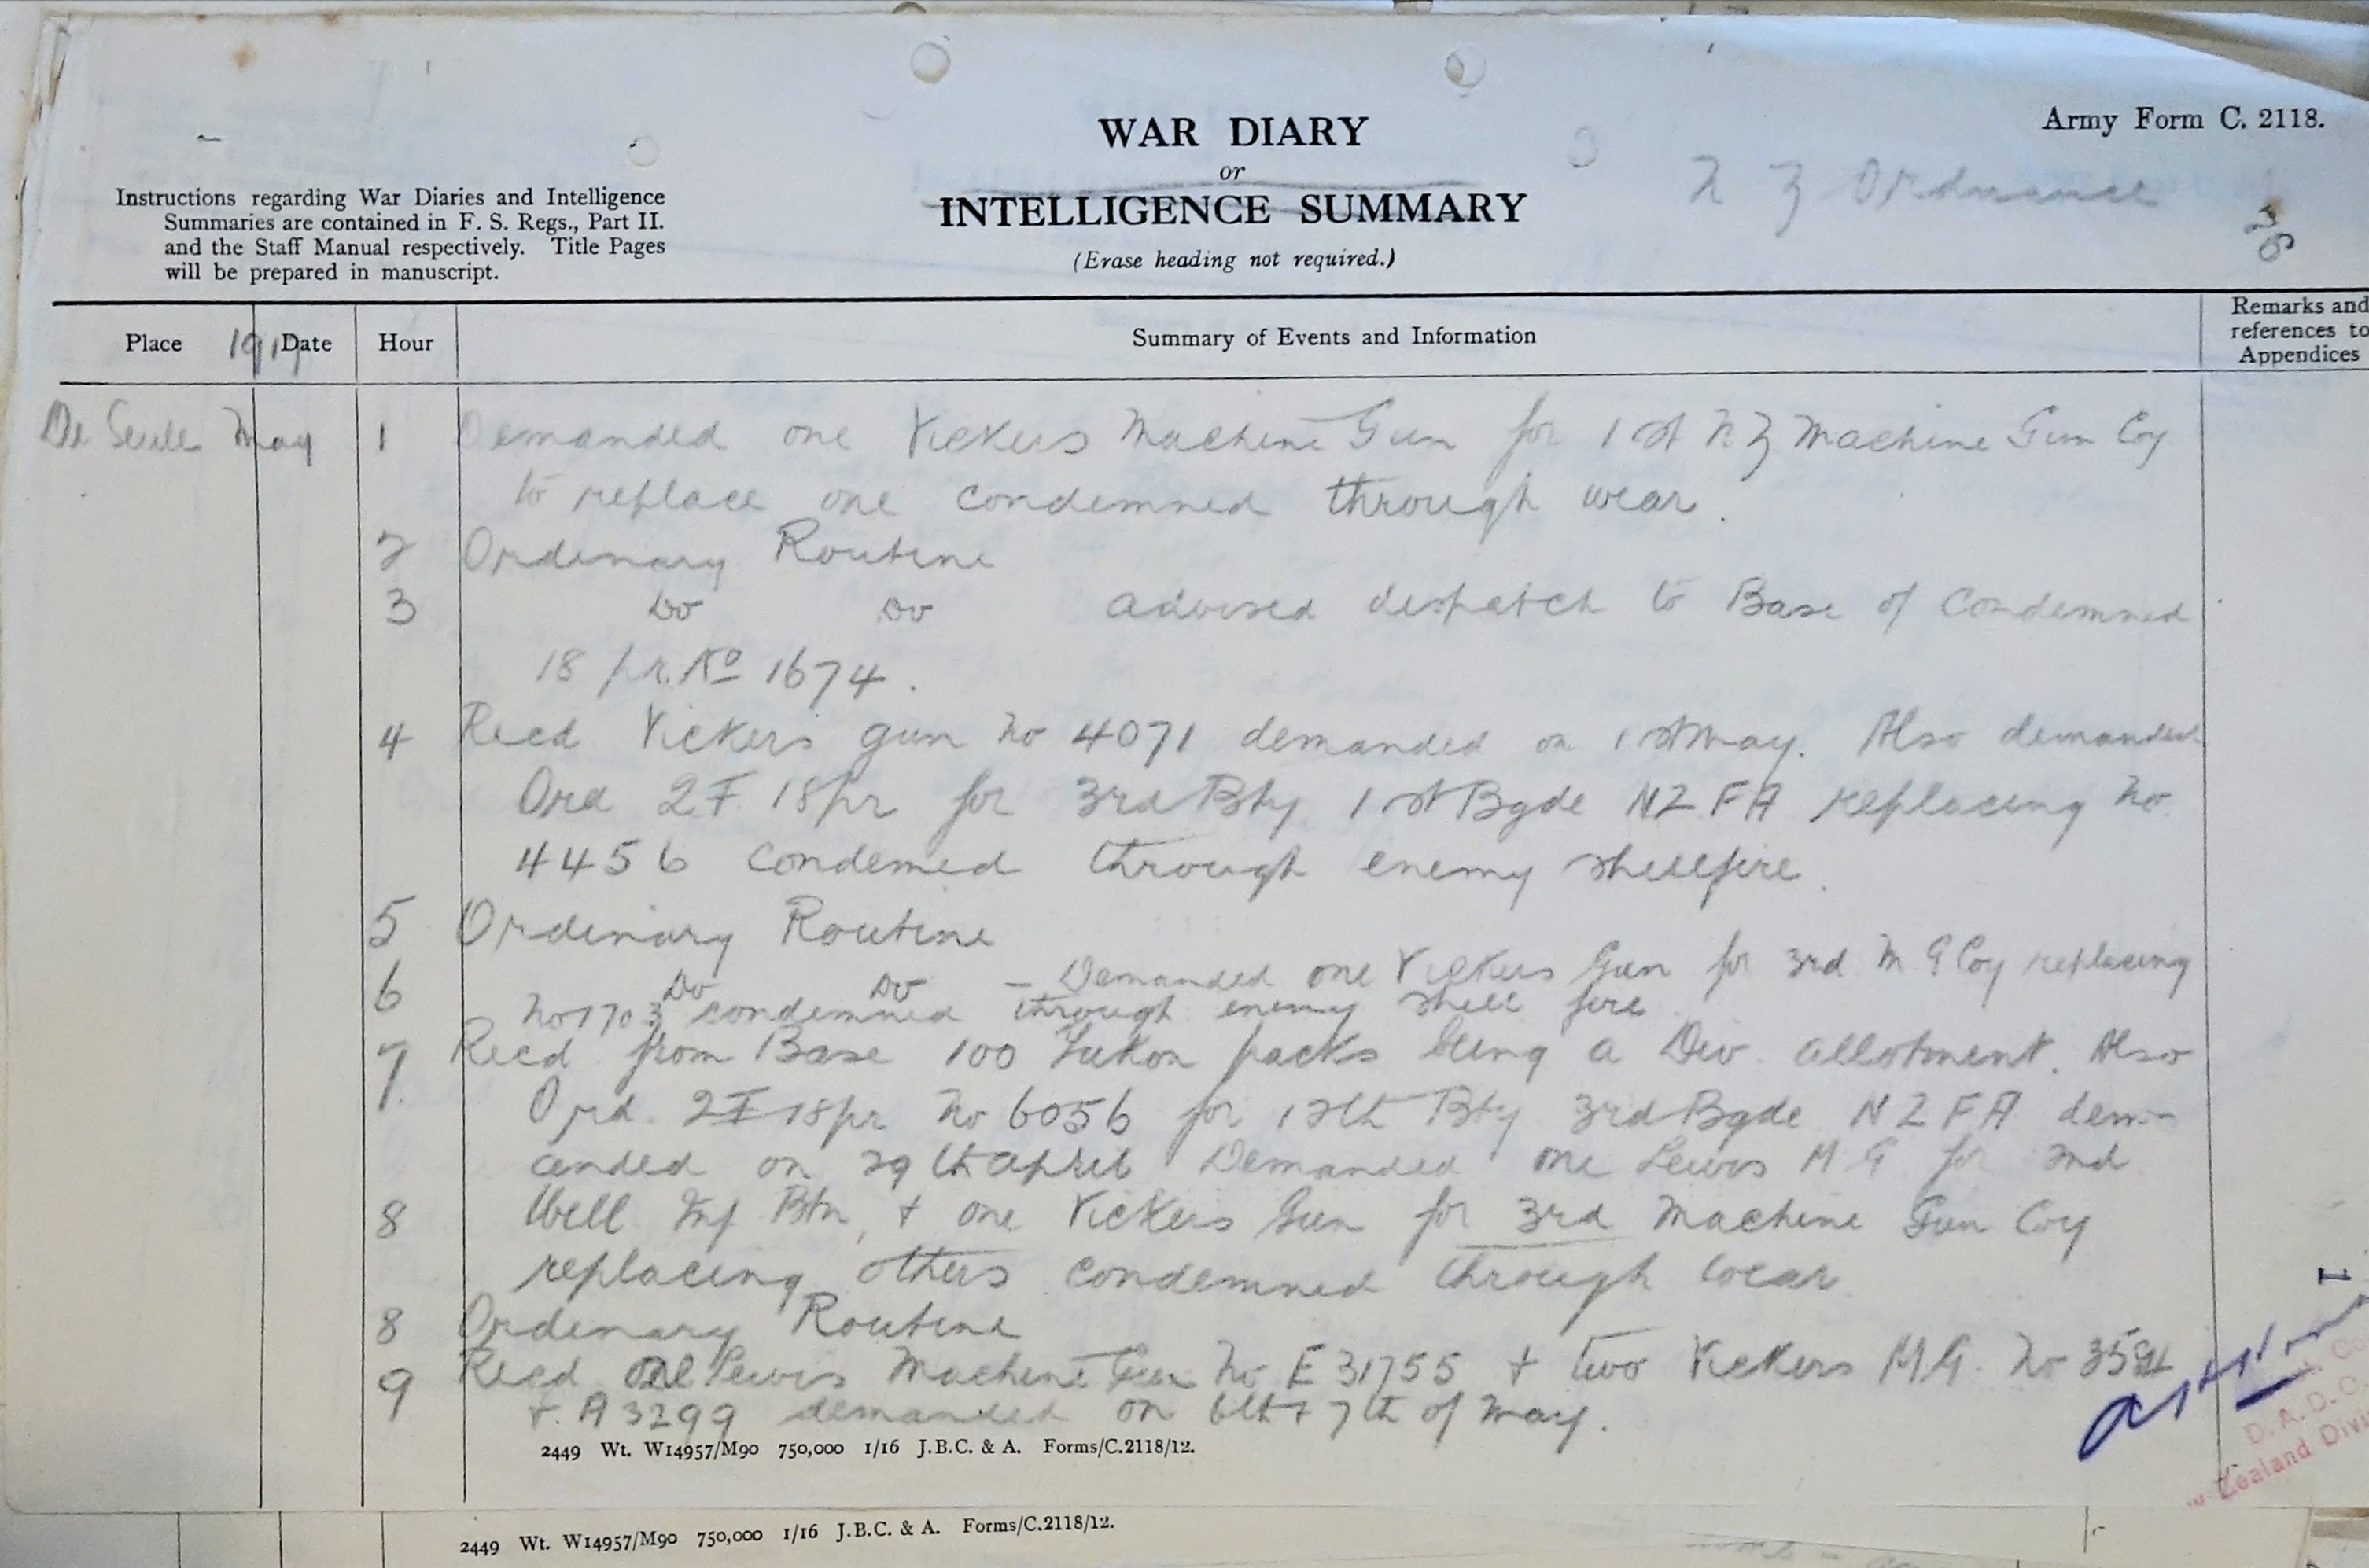 Army Form C. 2118.
WAR DIARY
or
INTELLIGENCE SUMMARY
(Erase heading not required.)
N Z Ordnance
26
Instructions regarding War Diaries and Intelligence
Summaries are contained in F. S. Regs., Part II.
and the Staff Manual respectively. Title Pages
will be prepared in manuscript.
Place 1917 Date Hour Summary of Events and Information
Remarks and
references to
Appendices
De Seule May 1 Demanded one Vickers Machine Gun for 1st N Z Machine Gun Coy
to replace one condemned through wear.
2 Ordinary Routine
3 Do Do advised despatch to Base of Condemned
18 pr. No 1674.
4 Recd Vickers gun No 4071 demanded on 1st May. Also demanded
Ord 2 F. 18pr for 3rd Bty 1st Bgde NZ FA replacing No
4456 condemed through enemy shellfire.
5 Ordinary Routine
6 Do Do - Demanded one Vickers Gun for 3rd M G Coy replacing
No 1703 condemned through enemy shell fire
7. Recd from Base 100 Yukon packs being a Div. allotment. Also
Ord. 2 F 18pr No 6056 for 12th Bty 3rd Bgde N Z F A dem-
anded on 29th April Demanded one Lewis M G for 2nd
8 Well Inf Btn, + one Vickers Gun for 3rd Machine Gun Coy
replacing others condemned through wear
8 Ordinary Routine
9 Recd one Lewis Machine Gun No E 31755 + two Vickers M.G. No
+ A 3299 demanded on 6th + 7th of May.
2449 Wt. W14957/M90 750,000 1/16 J.B.C. & A. Forms/C.2118/12.
D.A.D.O.
Zealand Divi
2449 Wt. W14957/M90 750,000 1/16 J.B.C. & A. Forms/C.2118/12.